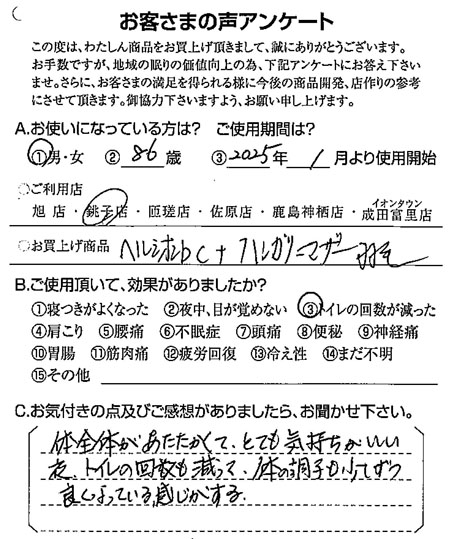 お客さまの声アンケート
この度は、わたしん商品をお買上げ頂きまして、誠にありがとうございます。
お手数ですが、地域の眠りの価値向上の為、下記アンケートにお答え下さい
ませ。さらに、お客さまの満足を得られる様に今後の商品開発、店作りの参考
にさせて頂きます。御協力下さいますよう、お願い申し上げます。
A.お使いになっている方は? ご使用期間は?
①男・女 ② 86 歳 ③ 2025年 1 月より使用開始
○ご利用店
旭店・銚子店・匝瑳店・佐原店・鹿島神栖店・イオンタウン成田富里店
○お買上げ商品 ヘルシオンbc+ハンガリーマザー羽毛
B.ご使用頂いて、効果がありましたか?
①寝つきがよくなった ②夜中、目が覚めない ③トイレの回数が減った
④肩こり ⑤腰痛 ⑥不眠症 ⑦頭痛 ⑧便秘 ⑨神経痛
⑩胃腸 ⑪筋肉痛 ⑫疲労回復 ⑬冷え性 ⑭まだ不明
⑮その他
C.お気付きの点及びご感想がありましたら、お聞かせ下さい。
体全体があたたかくて、とても気持ちがいい
夜、トイレの回数も減って、体の調子も少しずつ
良くなっている感じがする。